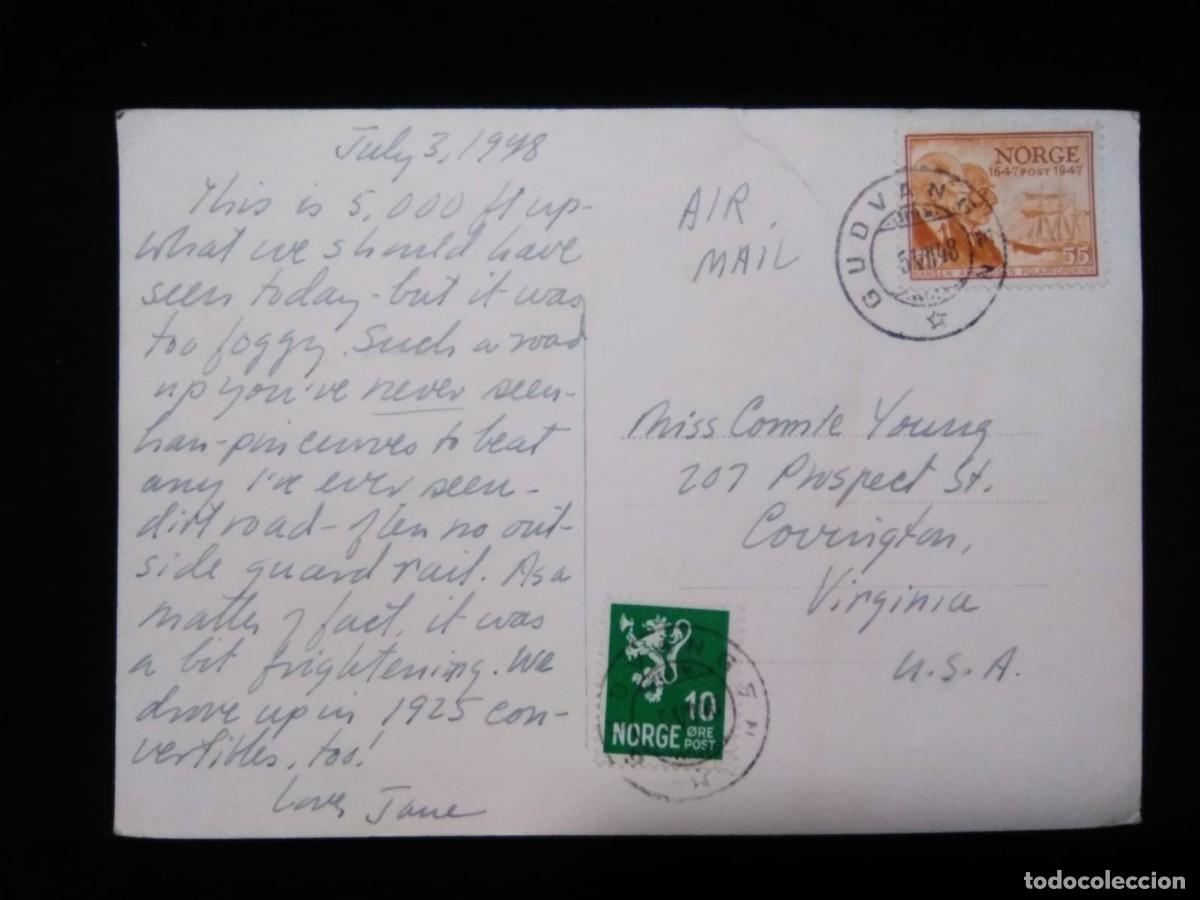 July 3, 1948
This is 5,000 ft up-
what we should have
seen today - but it was
too foggy. Such a road
up you've never seen -
han-pin curves to beat
any I've ever seen -
dirt road - often no out-
side guard rail. As a
matter of fact, it was
a bit frightening. We
drove up in 1925 con-
vertibles, too!
Love, Jane
AIR
MAIL
NORGE
1647 POST 1947
55
NANSEN POLARFORSKING
GUDVANGEN
5 VII 48
Miss Connie Young
207 Prospect St.
Covington,
Virginia
U.S.A.
10
NORGE ØRE
POST
todocoleccion